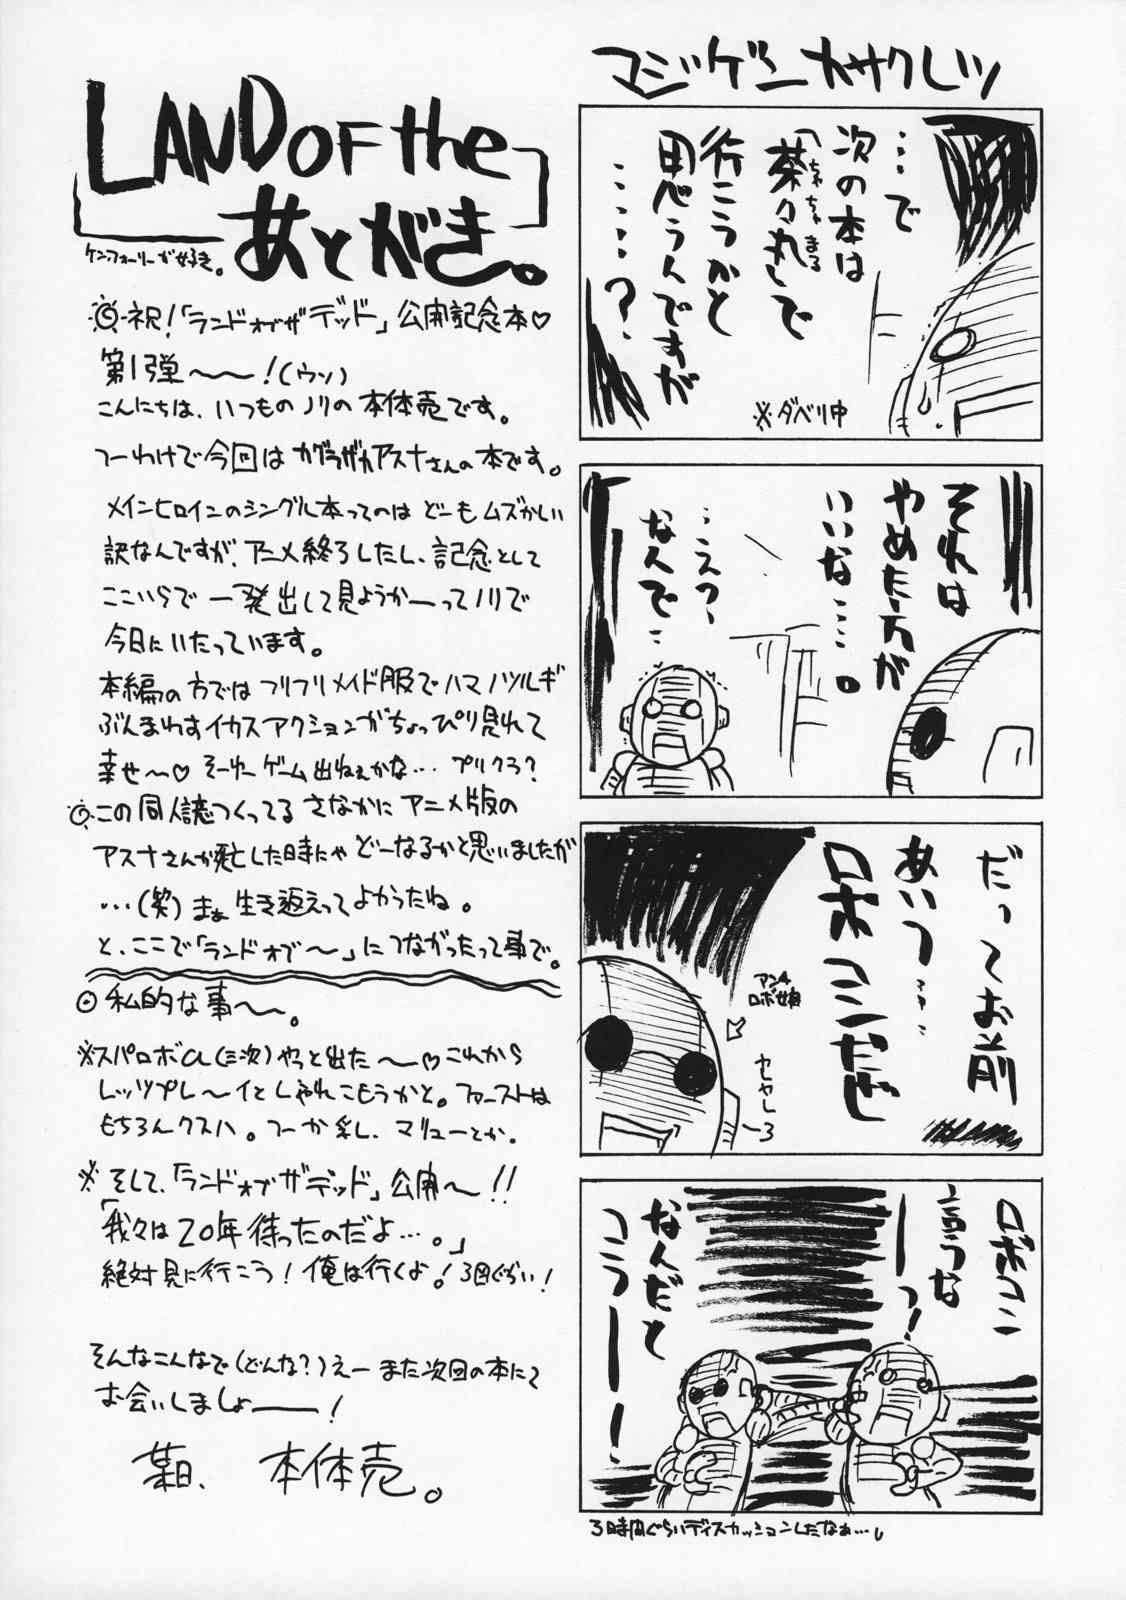 LAND OF the
あとがき。
ケンフォーリーが好き。
◎祝!「ランドオブザデッド」公開記念本♡
第1弾〜〜!(ウソ)
こんにちは、いつものノリの本体売です。
つーわけで今回はカグラザカアスナさんの本です。
メインヒロインのシングル本ってのはどーもムズかしい
訳なんですが、アニメ終了したし、記念として
ここいらで一発出して見ようかーってノリで
今日にいたっています。
本編の方ではフリフリメイド服でハマノツルギ
ぶんまわすイカスアクションがちょっぴり見れて
幸せ〜♡そーゆーゲーム出ねぇかな…プリクラ?
◎この同人誌つくってるさなかにアニメ版の
アスナさんが死亡した時にゃどーなるかと思いましたが
…(笑)まぁ生き返えってよかったね。
と、ここで「ランドオブ〜」につながったって事で。
◎私的な事〜〜。
※スパロボα(三次)やっと出た〜♡これから
レッツプレ〜イとしゃれこもうかと。ファーストは
もちろんクスハ。つーか乳し、マリューとか。
※そして、「ランドオブザデッド」公開〜!!
「我々は20年待ったのだよ…。」
絶対見に行こう!俺は行くよ!3回ぐらい!
そんなこんなで(どんな?)えーまた次回の本にて
お会いしましょーー!
某日、本体売。
マジゲンカサクレツ
…で
次の本は
「茶々丸」で
ちゃちゃまる
行こうかと
思うんですが
……?
※ダベリ中
それは
やめた方が
いいな…。
…えっ、
なんで…
だってお前
あいつ…
ロボコンだぜ
アンチ
ロボ娘
ヤヤしろ
ロボコン
言うな
ーっ!
なんだと
コラーー!
3時間ぐらいディスカッションしたなぁ…。